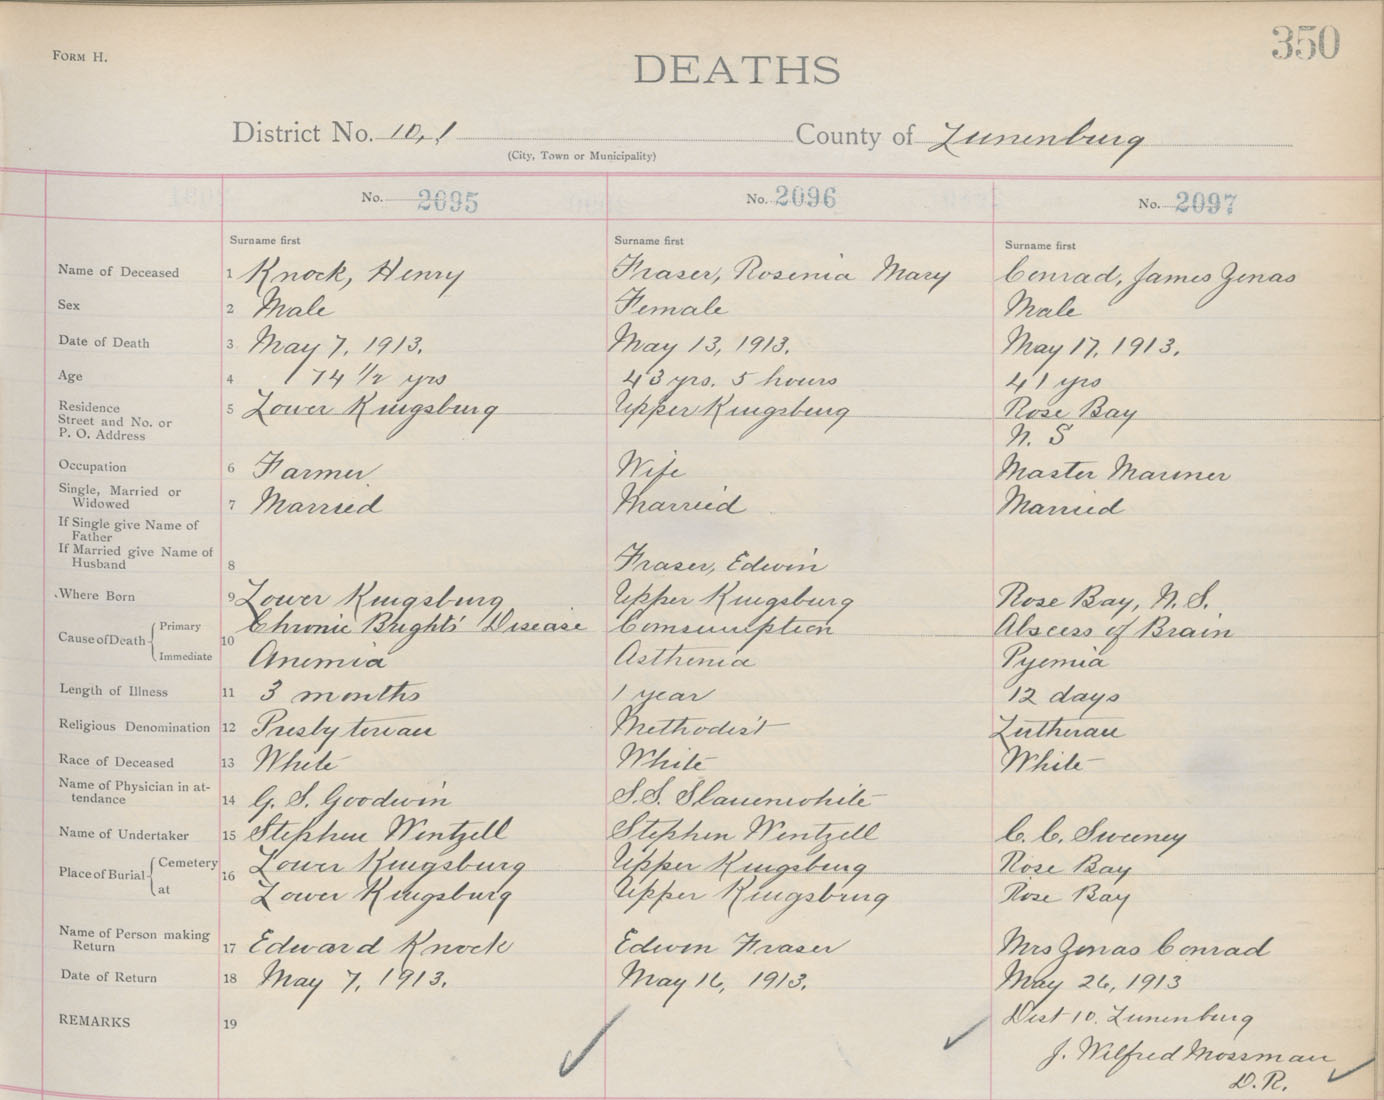 350
FORM H.
DEATHS
District No. 10,1 County of Lunenburg
(City, Town or Municipality)
No. 2695 No. 2696 No. 2697
Surname first Surname first Surname first
Name of Deceased 1 Knock, Henry Fraser, Rosenia Mary Conrad, James Zenas
Sex 2 Male Female Male
Date of Death 3 May 7, 1913. May 13, 1913. May 17, 1913.
Age 4 74 1/2 yrs 43 yrs. 5 hours 41 yrs
Residence 5 Lower Kingsburg Upper Kingsburg Rose Bay
Street and No. or
P. O. Address N. S
Occupation 6 Farmer Wife Master Mariner
Single, Married or
Widowed 7 Married Married Married
If Single give Name of
Father
If Married give Name of
Husband 8 Fraser, Edwin
Where Born 9 Lower Kingsburg Upper Kingsburg Rose Bay, N. S.
Cause of Death Primary 10 Chronic Brights' Disease Comsumption Abscess of Brain
Immediate Anemia Asthenia Pyemia
Length of Illness 11 3 months 1 year 12 days
Religious Denomination 12 Presbyterian Methodist Lutheran
Race of Deceased 13 White White White
Name of Physician in at-
tendance 14 G. S. Goodwin S.S. Slauenwhite
Name of Undertaker 15 Stephen Wentzell Stephen Wentzell C. C. Sweeney
Place of Burial Cemetery 16 Lower Kingsburg Upper Kingsburg Rose Bay
at Lower Kingsburg Upper Kingsburg Rose Bay
Name of Person making
Return 17 Edward Knock Edwin Fraser Mrs Zenas Conrad
Date of Return 18 May 7, 1913. May 16, 1913. May 26, 1913
REMARKS 19 Dist 10. Lunenburg
J. Wilfred Mossman
D. R.